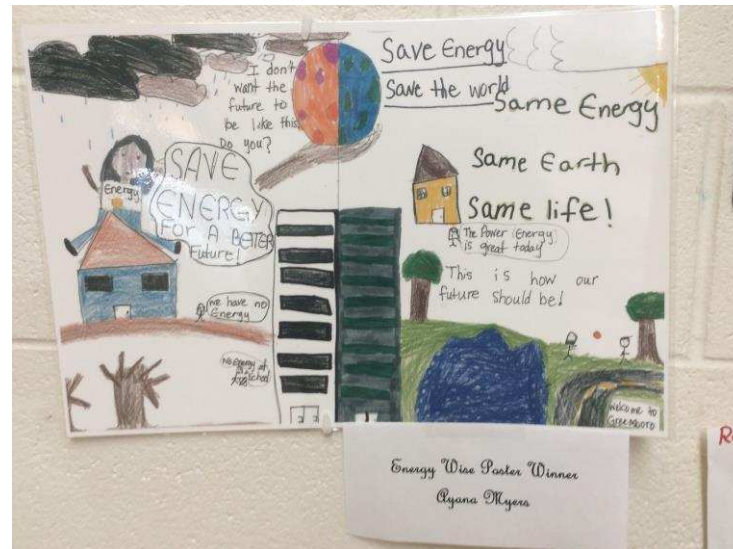 I don't
want the
future to
be like this.
Do you?
Energy
SAVE
ENERGY
FOR A BETTER
Future!
we have no
Energy
No Energy at
School
Save Energy
Save the world
Same Energy
Same Earth
Same life!
The Power Energy
is great today
This is how our
future should be!
Welcome to
Greensboro
Energy Wise Poster Winner
Ayana Myers
R